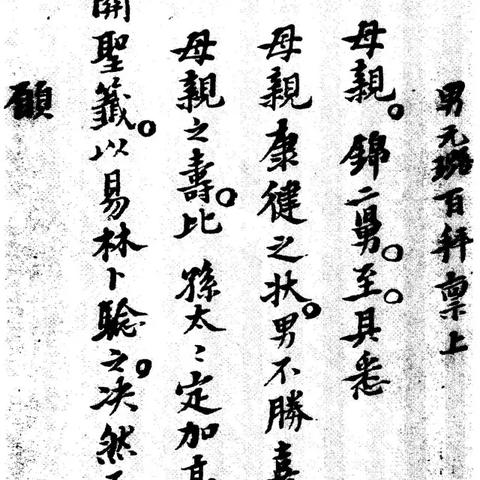 男元璐百拜稟上
母親。錦二舅。至。具悉
母親康健之狀。男不勝喜
母親之壽。比 孫太々定加
開聖籤。以易林卜驗之。决然